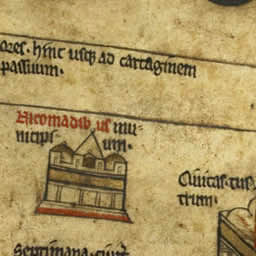 ores. hinc usq ad cartaginem
passuum.
Nicomadib us mu-
nicipi-
um.
Civitas. tus
trum.
Septimana. civit